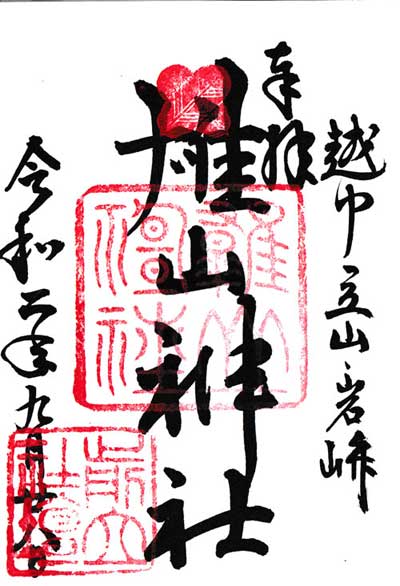 越中立山岩峅
奉拝
雄山神社
雄山神社
令和二年九月廿六日